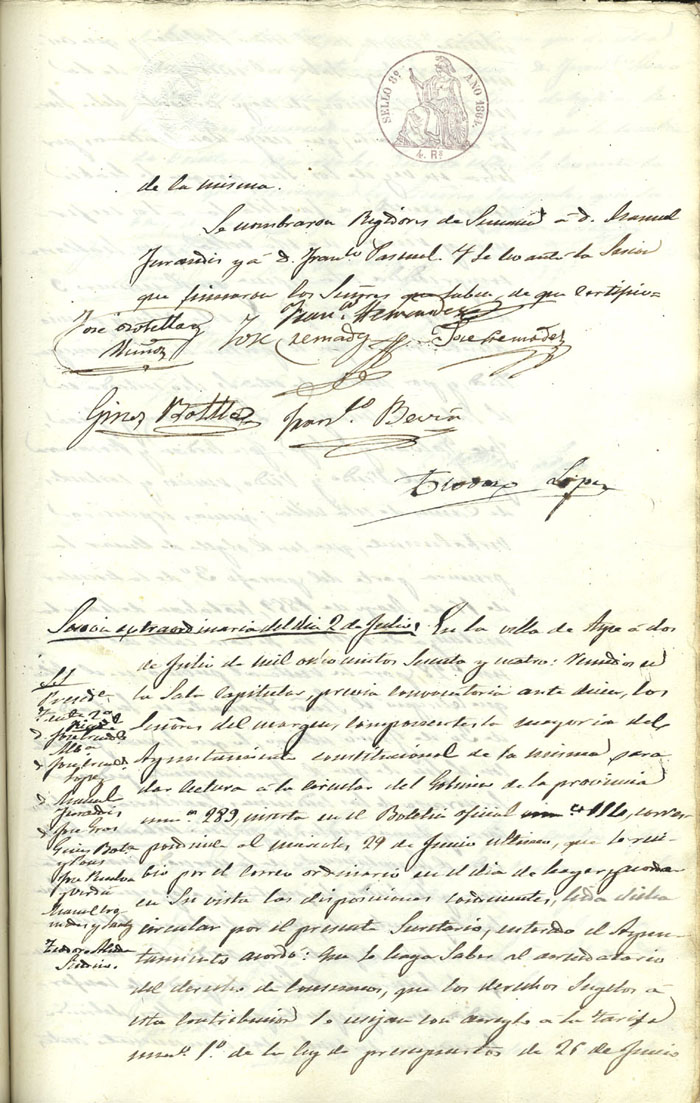 SELLO 8º AÑO 1864.
4. Rs
de la misma.
Se nombraron Regidores de Semana á D. Manuel
Jurandis y á D. Franco Pascuel. Y se levantó la Sesion
que firmaron los Señores que saben, de que certifico=
José
Muñoz
José Cremades
Franco Hernandez
José Cremades
Gines Franco
Teodoro Lopez
Sesion extraordinaria del dia 2 de Julio. En la villa de Aspe á dos
de Julio de mil ochocientos sesenta y cuatro: Reunidos en
la Sala Capitular, previa convocatoria ante diem, los
Señores del margen, componentes la mayoria del
Ayuntamiento constitucional de la misma para
dar lectura á la circular del Gobierno de la provincia
numo 289, inserta en el Boletin oficial 110, corres
pondiente al miercoles 29 de Junio ultimo, que se reci-
bió por el correo ordinario en el dia de hayer, y
en su vista las disposiciones convenientes, leida dicha
circular por el presente Secretario, enterado el Ayun-
tamiento acordó: Que se haga saber al arrendatario
del derecho de Consumos, que los derechos sugetos á
esta contribucion se exijan con arreglo á la tarifa
numo 1º de la ley de presupuestos de 25 de Junio
Preside
Teniente 2º
José
Alba
José
Lopez
Manuel
Jurandis
José Gros
Gines
y Pons
José
Verdú
Manuel
y
Teodoro
Sindico.